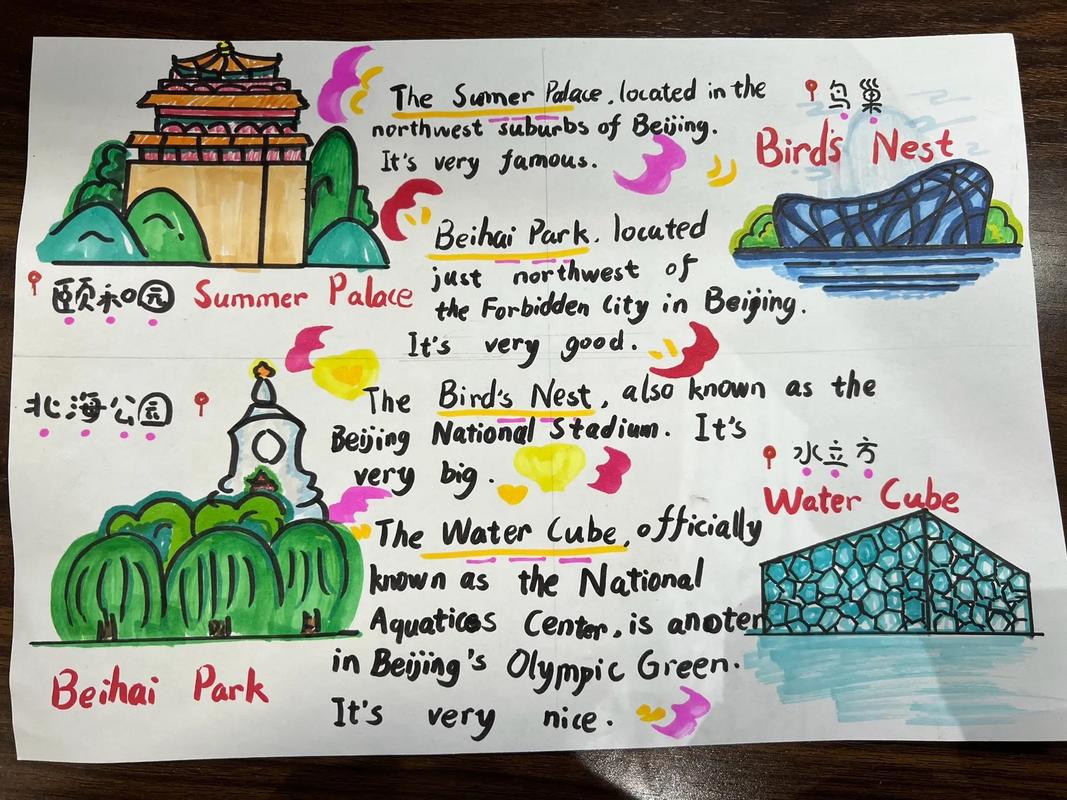 The Sumer Palace, located in the
northwest suburbs of Beijing.
It's very famous.
颐和园 Summer Palace
鸟巢
Bird's Nest
Beihai Park, located
just northwest of
the Forbidden City in Beijing.
It's very good.
北海公园
Beihai Park
The Bird's Nest, also known as the
Beijing National Stadium. It's
very big.
水立方
Water Cube
The Water Cube, officially
known as the National
Aquaticos Center, is anoter
in Beijing's Olympic Green.
It's very nice.